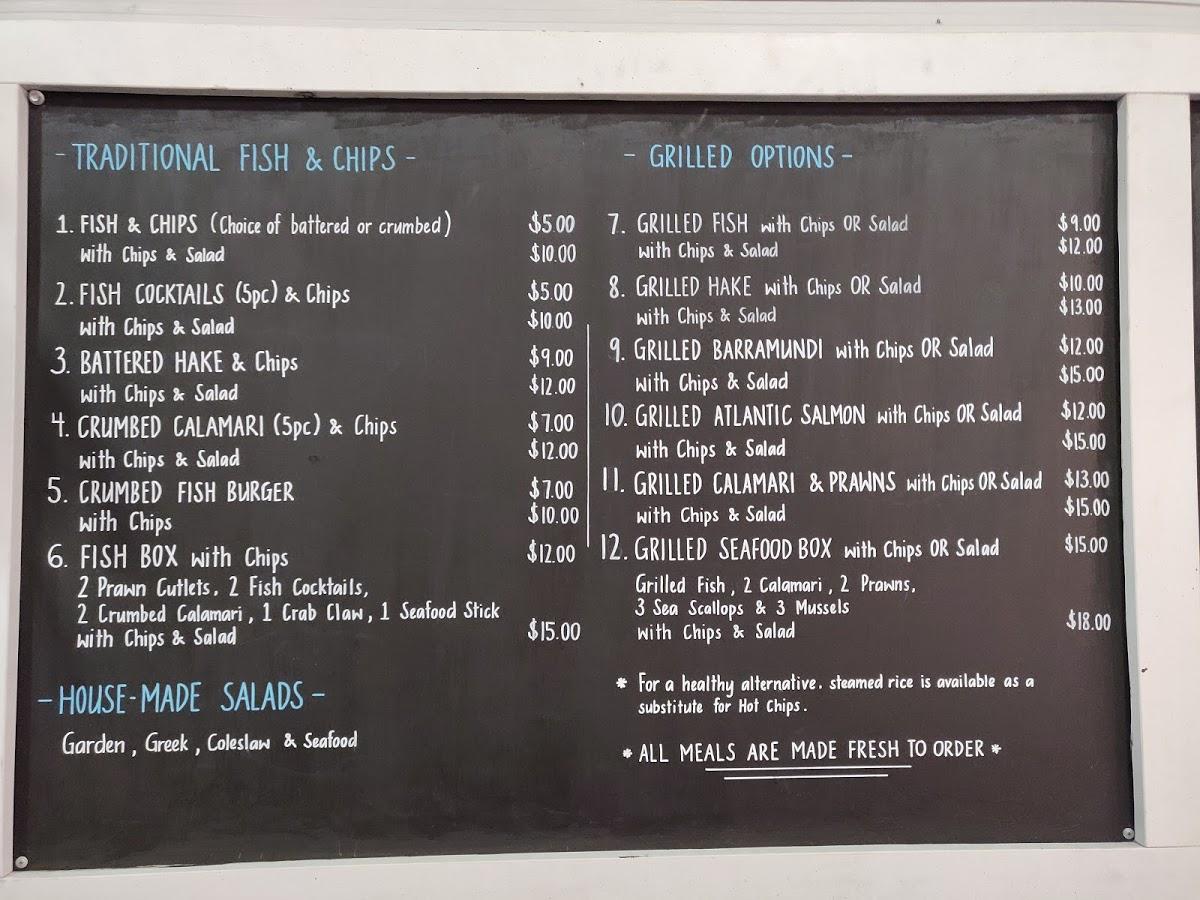 - TRADITIONAL FISH & CHIPS -
1. FISH & CHIPS (Choice of battered or crumbed) $5.00
with Chips & Salad $10.00
2. FISH COCKTAILS (5pc) & Chips $5.00
with Chips & Salad $10.00
3. BATTERED HAKE & Chips $9.00
with Chips & Salad $12.00
4. CRUMBED CALAMARI (5pc) & Chips $7.00
with Chips & Salad $12.00
5. CRUMBED FISH BURGER $7.00
with Chips $10.00
6. FISH BOX with Chips $12.00
2 Prawn Cutlets. 2 Fish Cocktails,
2 Crumbed Calamari, 1 Crab Claw, 1 Seafood Stick
with Chips & Salad $15.00
- HOUSE-MADE SALADS -
Garden, Greek, Coleslaw & Seafood
- GRILLED OPTIONS -
7. GRILLED FISH with Chips OR Salad $9.00
with Chips & Salad $12.00
8. GRILLED HAKE with Chips OR Salad $10.00
with Chips & Salad $13.00
9. GRILLED BARRAMUNDI with Chips OR Salad $12.00
with Chips & Salad $15.00
10. GRILLED ATLANTIC SALMON with Chips OR Salad $12.00
with Chips & Salad $15.00
11. GRILLED CALAMARI & PRAWNS with Chips OR Salad $13.00
with Chips & Salad $15.00
12. GRILLED SEAFOOD BOX with Chips OR Salad $15.00
Grilled Fish, 2 Calamari, 2 Prawns,
3 Sea Scallops & 3 Mussels
with Chips & Salad $18.00
* For a healthy alternative. steamed rice is available as a
substitute for Hot Chips.
* ALL MEALS ARE MADE FRESH TO ORDER *